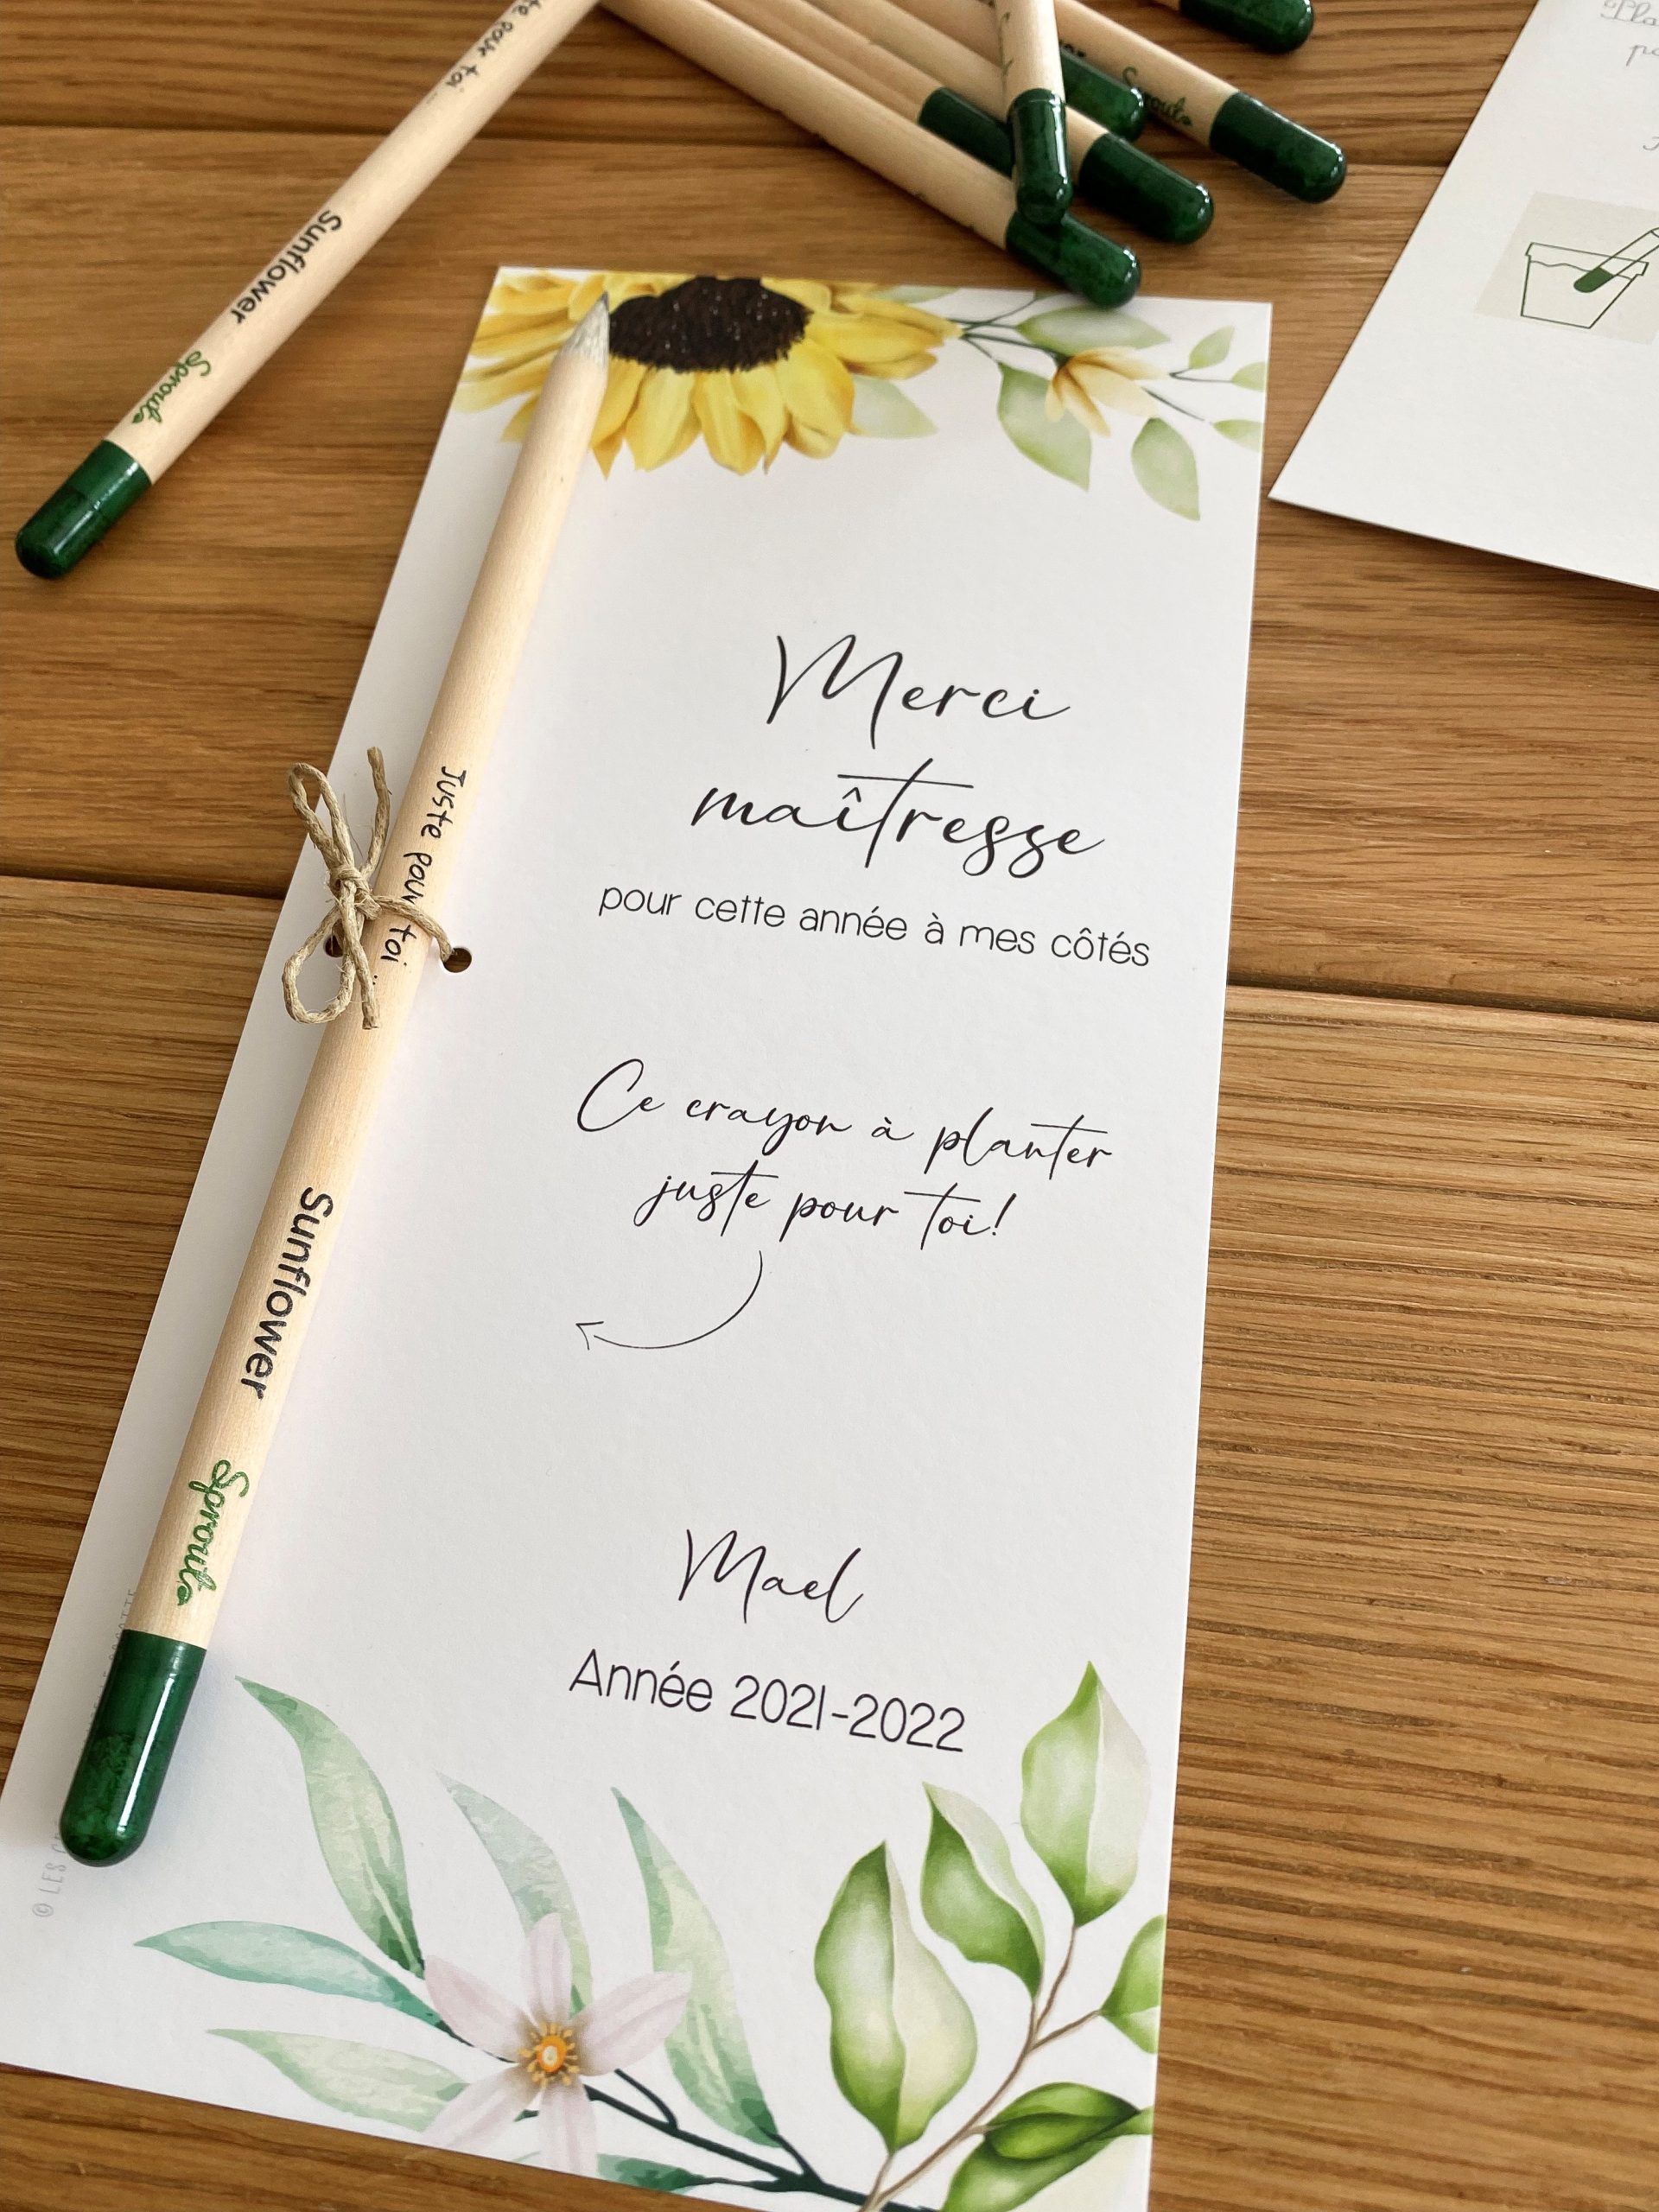 Merci
maîtresse
pour cette année à mes côtés
Ce crayon à planter
juste pour toi!
Mael
Année 2021-2022
Juste pour toi ...
Sunflower
Sprout
pour toi ...
Sunflower
Sprout
Sprout
© LES